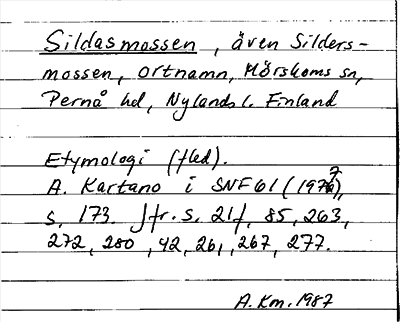 Sildasmossen, även Silders-
mossen, ortnamn, Mörskoms sn,
Pernå hd, Nylands l. Finland
Etymologi (fled).
A. Kartano i SNF 61 (1977),
s. 173. Jfr. s. 21f, 85, 263,
272, 280, 42, 261, 267, 277.
A. Km. 1987